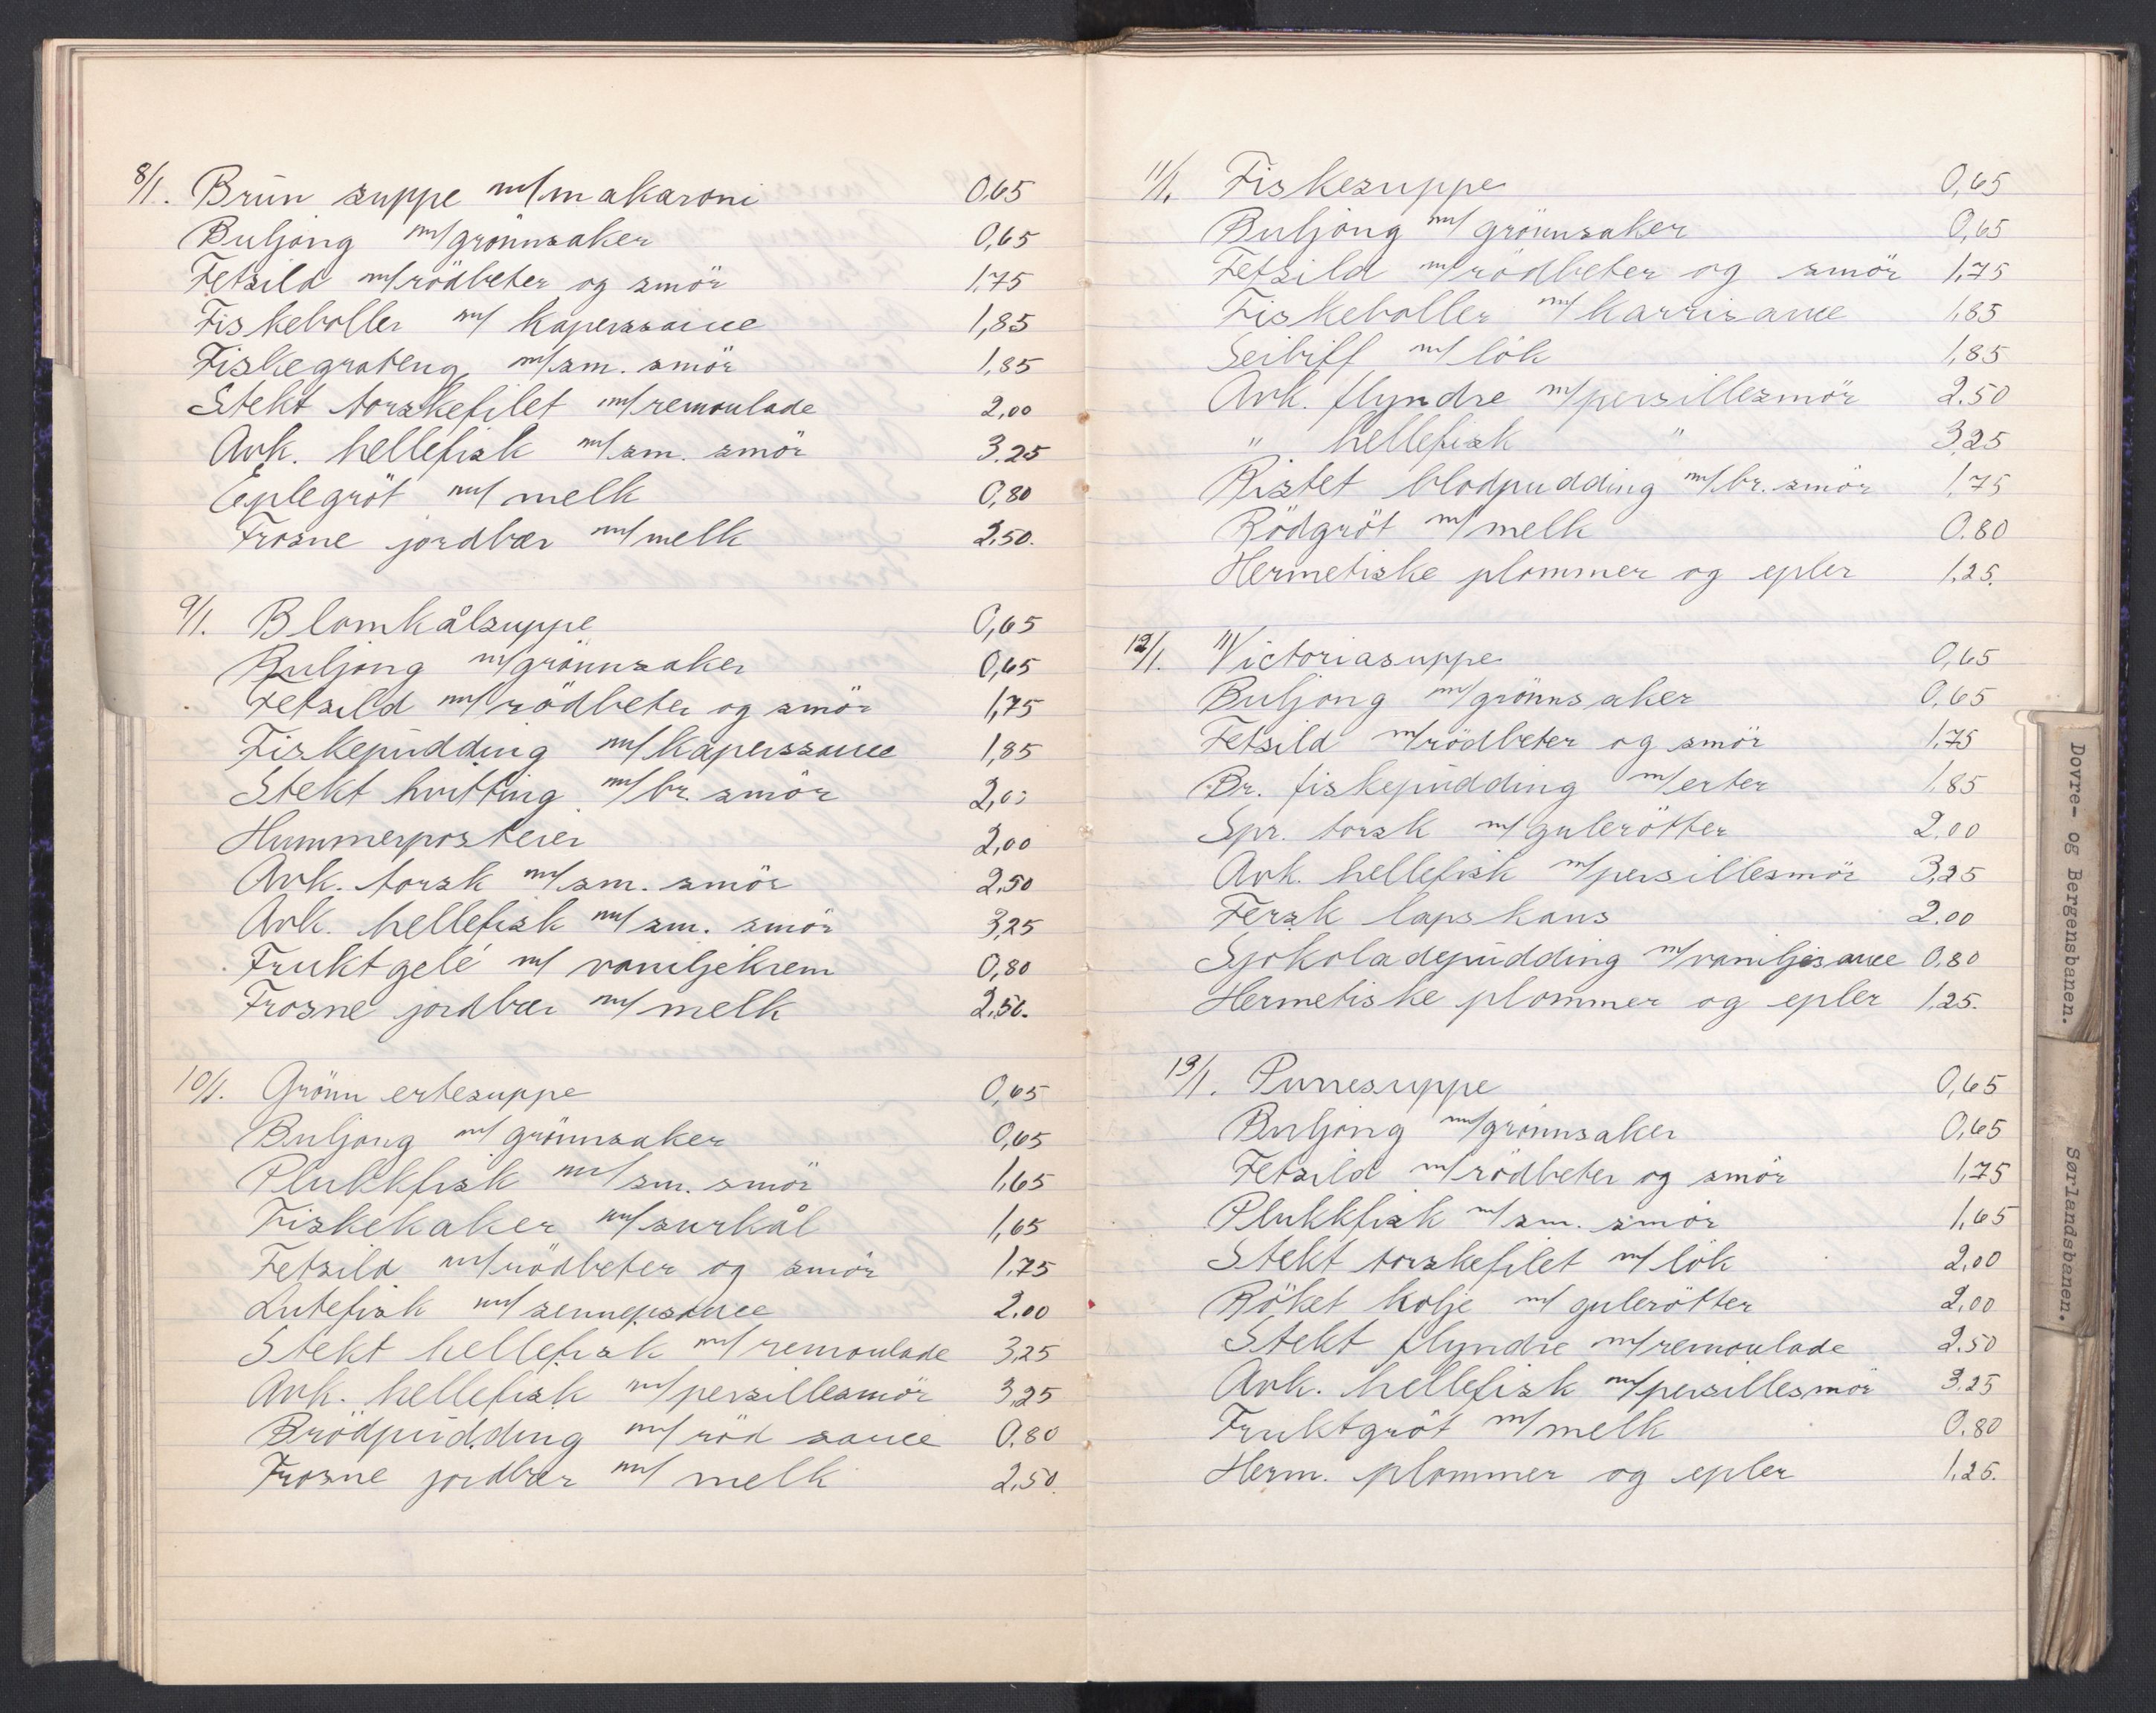 8/1. Brun suppe m/makaroni 0,65
Buljong m/grönnsaker 0,65
Fetsild m/rödbeter og smör 1,75
Fiskeboller m/ kaperssauce 1,85
Fiskegrateng m/sm. smör 1,85
Stekt torskefilet m/remoulade 2,00
Avk. hellefisk m/sm. smör 3.25
Eplegröt m/ melk 0,80
Frosne jordbær m/melk 2,50.
9/1. Blomkålsuppe 0,65
Buljong m/grönnsaker 0,65
Fetsild m/rödbeter og smör 1,75
Fiskepudding m/kaperssauce 1,85
Stekt hvitting m/br. smör 2,00
Hummerposteier 2,00
Avk. torsk m/sm. smör 2,50
Avk. hellefisk m/sm. smör 3,25
Fruktgelé m/ vaniljekrem 0,80
Frosne jordbær m/ melk 2,50.
10/1. Grönn ertesuppe 0,65
Buljong m/ grönnsaker 0,65
Plukkfisk m/sm. smör 1,65
Fiskekaker m/surkål 1,65
Fetsild m/rödbeter og smör 1,75
Lutefisk m/sennepsauce 2.00
Stekt hellefisk m/remoulade 3,25
Avk. hellefisk m/persillesmör 3,25
Brödpudding m/röd sauce 0.80
Frosne jordbær m/ melk 2,50.
11/1. Fiskesuppe 0,65
Buljong m/ grönnsaker 0,65
Fetsild m/rödbeter og smör 1,75
Fiskeboller m/karrisauce 1,85
Seibiff m/ lök 1,85
Avk. flyndre m/persillesmör 2.50
" hellefisk " 3,25
Ristet blodpudding m/br. smör 1,75
Rödgröt m/ melk 0.80
Hermetiske plommer og epler 1,25.
12/1. Victoriasuppe 0,65
Buljong m/grönnsaker 0,65
Fetsild m/rödbeter og smör 1,75
Br. fiskepudding m/erter 1,85
Spr. torsk m/gulerötter 2.00
Avk. hellefisk m/persillesmör 3,25
Fersk lapskaus 2.00
Sjokoladepudding m/vaniljesauce 0,80
Hermetiske plommer og epler 1,25.
13/1. Purresuppe 0,65
Buljong m/grönnsaker 0,65
Fetsild m/rödbeter og smör 1,75
Plukkfisk m/sm. smör 1,65
Stekt torskefilet m/ lök 2,00
Röket kolje m/ gulerötter 2,00
Stekt flyndre m/remoulade 2.50
Avk. hellefisk m/persillesmör 3.25
Fruktgröt m/melk 0.80
Herm. plommer og epler 1,25.
Dovre- og Bergensbanen.
Sørlandsbanen.